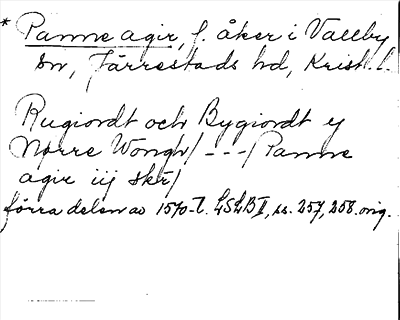 * Panne agir, f. åker i Vallby
sn, Järrestads hd, Krist. l.
Rugiordt och Bygiordt y
Nørre Wongh/ - - - / Panne
agir iij skr/
förra delen av 1570-t. LSLB II, ss. 257, 258. orig.